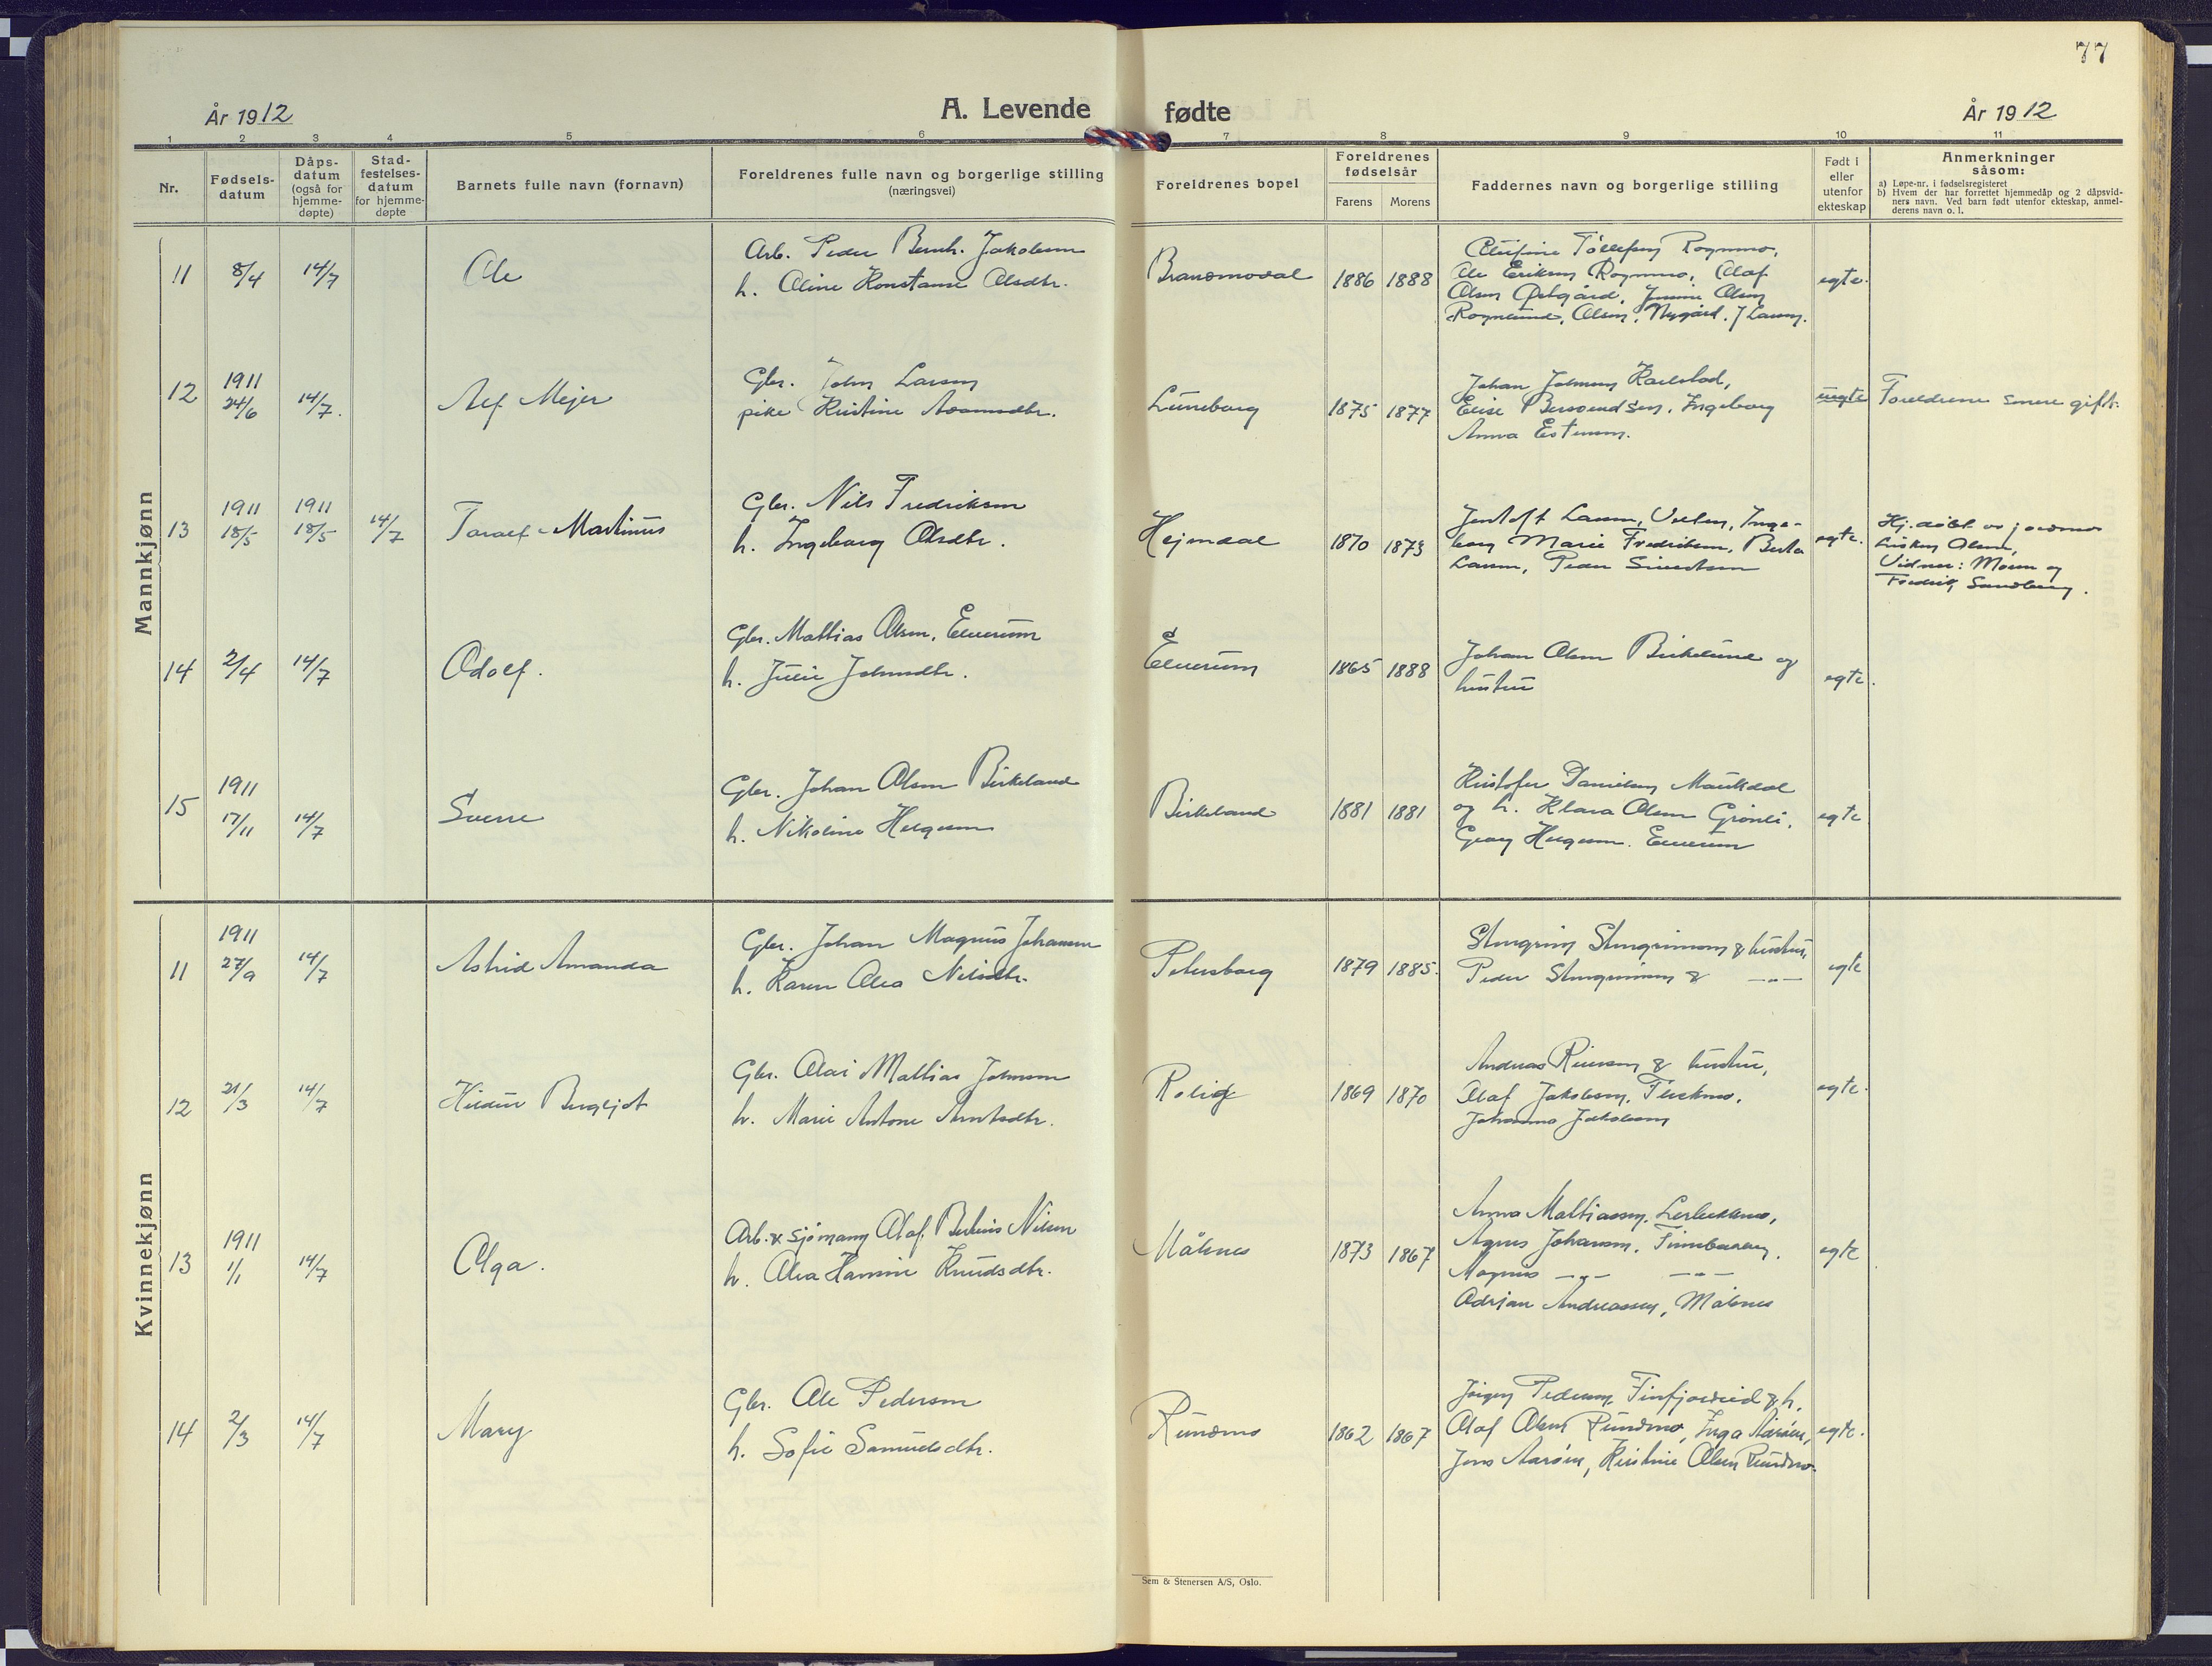 77
År 1912
A. Levende fødte
År 1912
1 2 3 4 5 6 7 8 9 10 11
Nr.
Fødsels-
datum
Dåps-
datum
(også for
hjemme-
døpte)
Stad-
festelses-
datum
for hjemme-
døpte
Barnets fulle navn (fornavn)
Foreldrenes fulle navn og borgerlige stilling
(næringsvei)
Foreldrenes bopel
Foreldrenes
fødselsår
Farens Morens
Faddernes navn og borgerlige stilling
Født i
eller
utenfor
ekteskap
Anmerkninger
såsom:
a) Løpe-nr. i fødselsregisteret
b) Hvem der har forrettet hjemmedåp og 2 dåpsvid-
ners navn. Ved barn født utenfor ekteskap, anmel-
derens navn o. l.
Mannkjønn
11 8/4 14/7 Ole
Arb. Peder Bernh. Jakobsen
h. Oline Konstanse Olsdtr.
Brandmodal 1886 1888
Tollefsen Rognmo,
Ole Eriksen Rognmo, Olaf
Olsen Østgård, Olsen
Rognlund, Olsen, Nygård, J Larsen.
egte.
12 1911 24/6 14/7. Alf Mejer
Gbr. John Larsen
pike Kristine
Luneborg 1875 1877
Johan Johnsen Karlstad,
Elise Berntsen, Ingeborg
Anna
uegte
Foreldrene senere gift.
13 1911 18/5 1911 18/5 14/7 Toralf Martinus
Gbr. Nils Fredriksen
h. Ingeborg Olsdtr.
Hejmdal 1870 1873
Jentoft Larsen, Inge-
borg Marie Fredriksen, Berta
Larsen, Peder Sivertsen
egte.
Hj.døbt av jordmor
Olsen,
Vidner: Moren og
Fredrik Sandberg.
14 2/4 14/7 Odolf.
Gbr. Mattias Olsen, Elverum
h. Julie Johnsdtr.
Elverum 1865 1888
Johan Olsen Birkelund og
hustru
egte.
15 1911 17/11 14/7 Sverre
Gbr. Johan Olsen Birkeland
h. Nikoline Helgesen
Birkeland 1881 1881
Kristofer Danielsen Maukdal
og h. Klara Olsen Grönli,
Georg Helgesen. Elverum
egte
Kvinnekjønn
11 1911 27/9 14/7 Astrid Amanda
Gbr. Johan Magnus Johansen
h. Karen Olea Nilsdtr.
Petersborg 1879 1885.
Stengrim Stengrimsen & hustru,
Peder Stengrimsen & —"—
egte
12 21/3 14/7 Hildur Bergljot
Gbr. Olai Mattias Johnsen
h. Marie Antone Arntsdtr.
Rolig 1869 1870
Andreas & hustru,
Olaf Jakobsen, Fleskmo,
Johanna Jakobsen
egte.
13 1911 1/1 14/7 Olga.
Arb. & sjømann Olaf Berteus Nilsen
h. Olea Hansine Knudsdtr.
Målsnes 1873 1867
Anna Mattiassen,
Agnes Johansen,
Magnus —"— —"—
Adrian Andreassen, Målsnes
egte
14 2/3 14/7 Mary
Gbr. Ole Pedersen
h. Sofie Samuelsdtr.
Rundmo 1862 1867
Jörgen Pedersen, Finfjordeid & h.
Olaf Olsen Rundmo, Inga Aarøen,
Jens Aarøen, Kristine Olsen Rundmo.
egte.
Sem & Stenersen A/S, Oslo.